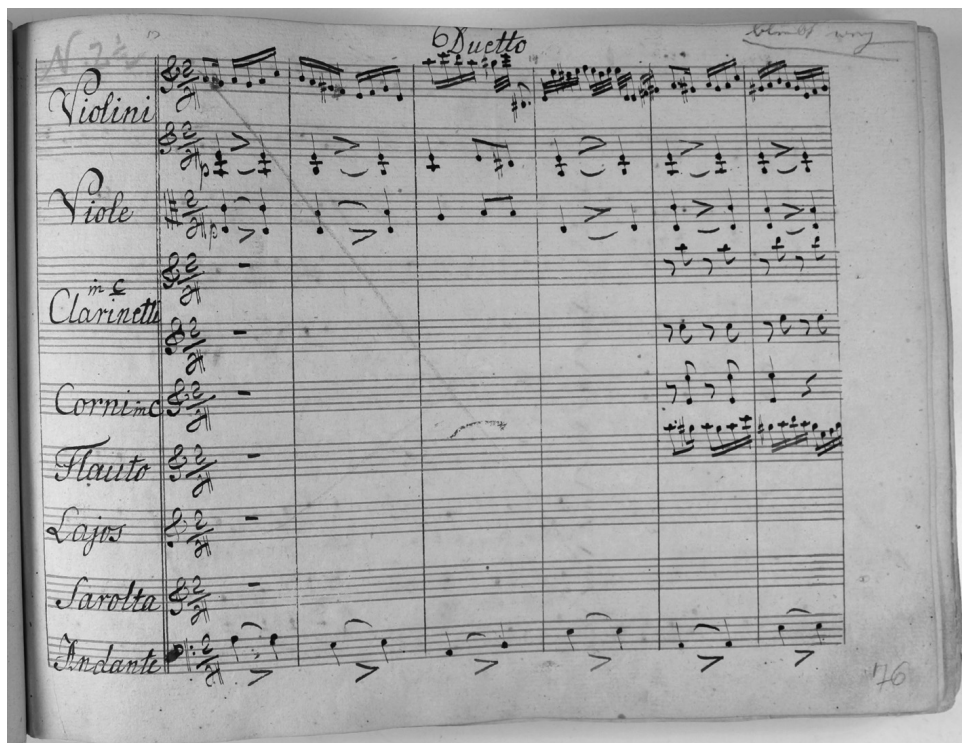 6 Duetto
Violini
p
Viole
p
in C
Clarinetti
Corni in C
Flauto
Lajos
Sarolta
Andante
76